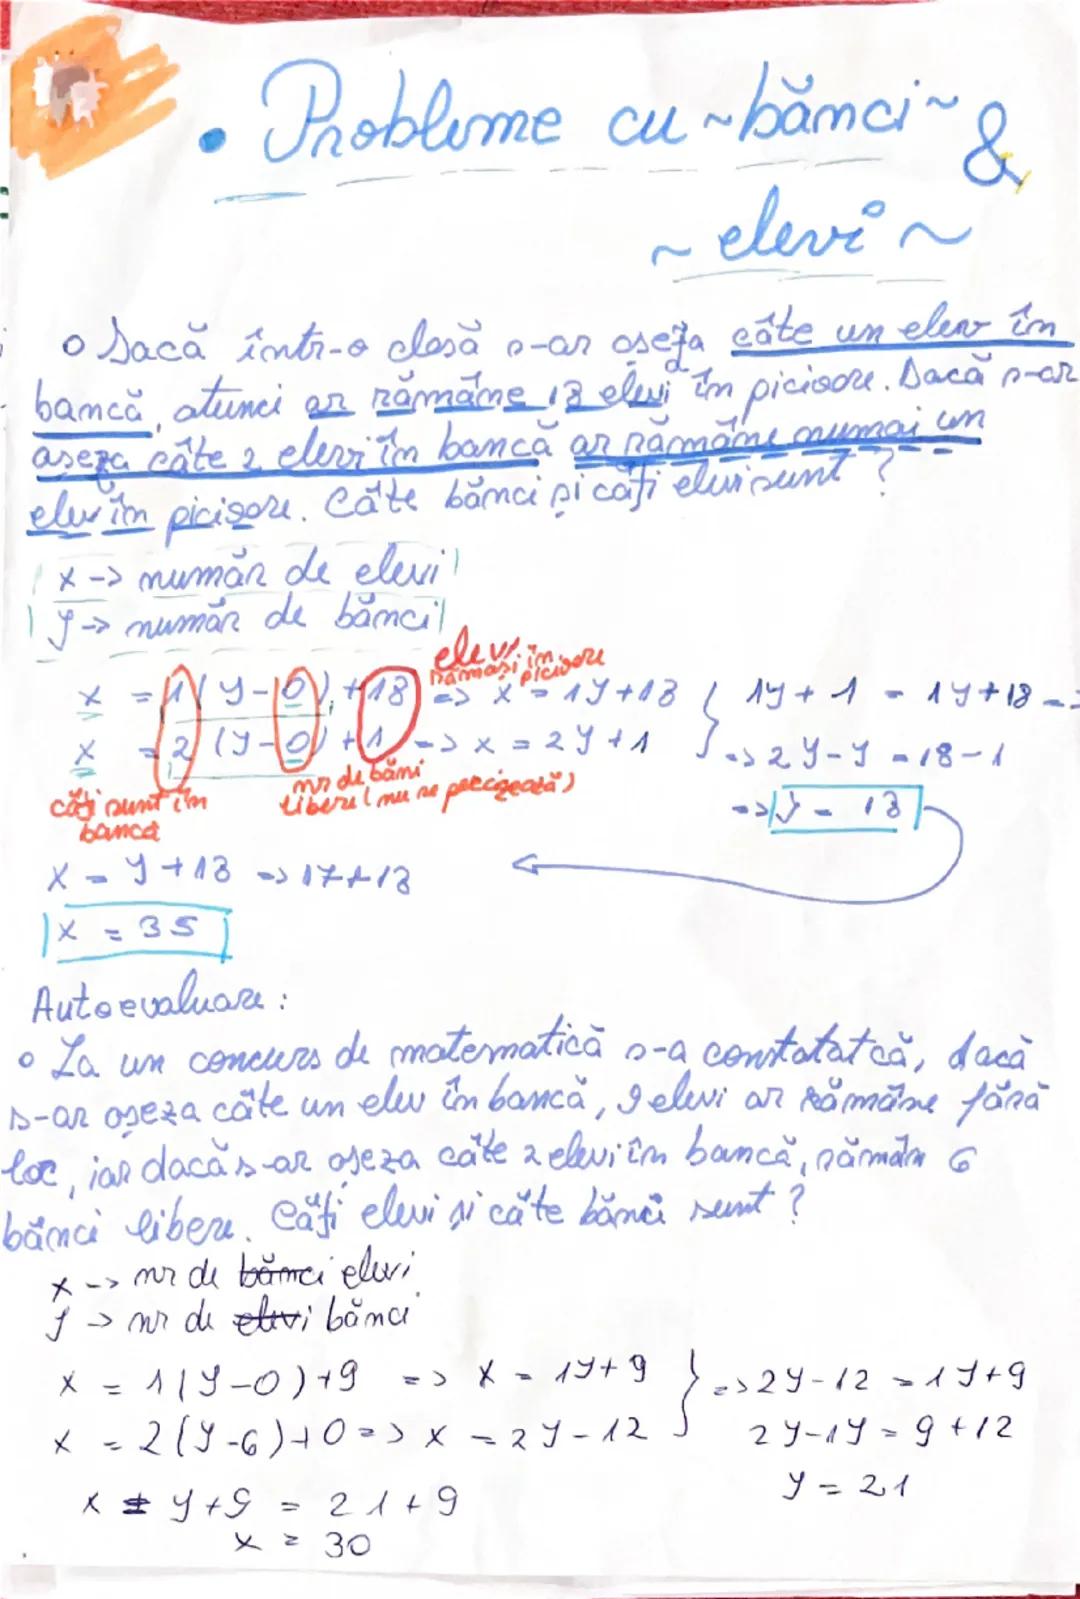 • Probleme cu ~bănci~ &
~ elevi ~
o Dacă într-o clasă s-ar așeza câte un elev în
bancă, atunci ar rămâne 18 elevi în picioare. Dacă s-ar
așeza câte 2 elevi în bancă ar rămâne numai un
elev în picioare. Câte bănci și câți elevi sunt?
x -> număr de elevi
y -> număr de bănci
elevi rămași în picioare
x = 1(y-0)+18 => x = 1y+18 } 1y+1 = 1y+18 =>
x = 2(y-0)+1 => x = 2y+1 => 2y-y = 18-1
câți sunt în bancă
nr de bănci libere (nu se precizează)
=> y = 18
x = y+18 => 17+18
x = 35
Autoevaluare:
• La un concurs de matematică s-a constatat că, dacă
s-ar așeza câte un elev în bancă, 9 elevi ar rămâne fără
loc, iar dacă s-ar așeza câte 2 elevi în bancă, rămân 6
bănci libere. Câți elevi și câte bănci sunt?
x -> nr de bănci elevi
y -> nr de elevi bănci
x = 1(y-0)+9 => x = 1y+9 } => 2y-12 = 1y+9
x = 2(y-6)+0 => x = 2y-12 2y-1y = 9+12
y = 21
x = y+9 = 21+9
x = 30